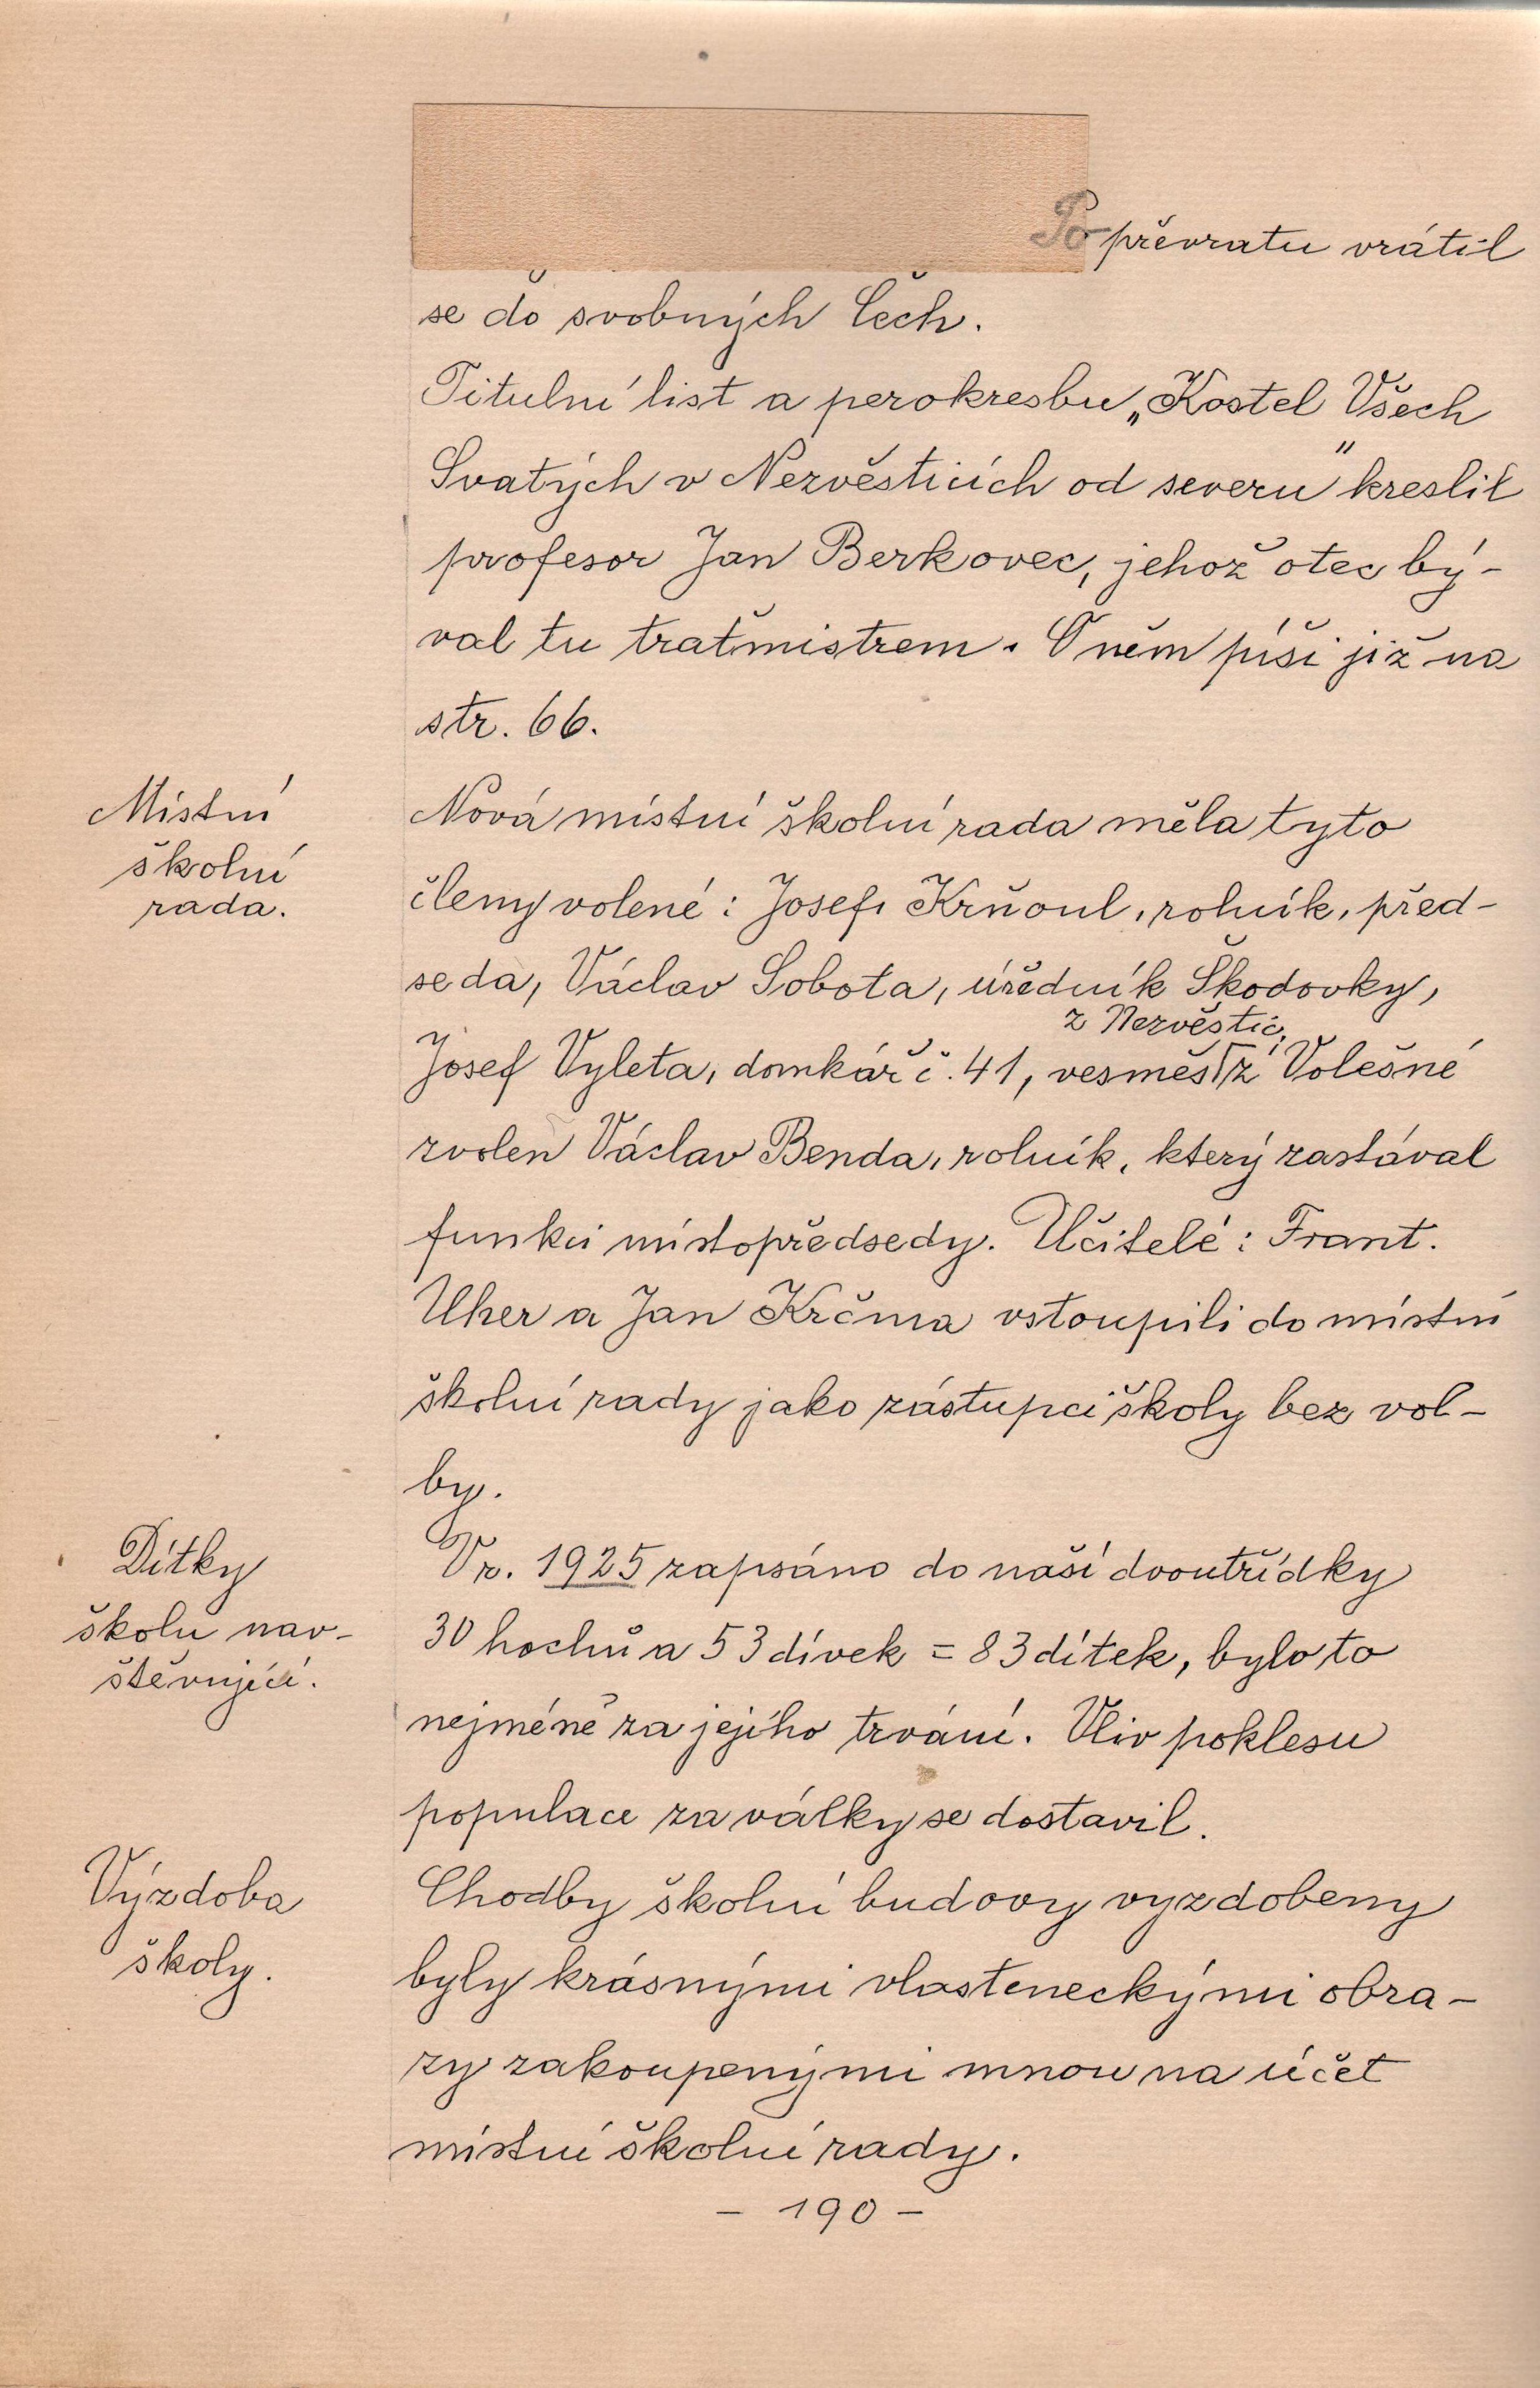 Po převratu vrátil
se do svobných Čech.
Titulní list a perokresbu „Kostel Všech
Svatých v Nezvěsticích od severu" kreslil
profesor Jan Berkovec, jehož otec bý-
val tu traťmistrem. O něm píši již na
str. 66.
Místní
školní
rada.
Nová místní školní rada měla tyto
členy volené: Josef Krňoul, rolník, před-
seda, Václav Sobota, úředník Škodovky,
z Nezvěstic,
Josef Vyleta, domkář č. 41, vesměs z Volešné
zvolen Václav Benda, rolník, který zastával
funkci místopředsedy. Učitelé: Frant.
Uher a Jan Krčma vstoupili do místní
školní rady jako zástupci školy bez vol-
by.
Dítky
školu nav-
štěvující.
V r. 1925 zapsáno do naší dvoutřídky
30 hochů a 53 dívek = 83 dítek, bylo to
nejméně za jejího trvání. Vliv poklesu
populace za války se dostavil.
Výzdoba
školy.
Chodby školní budovy vyzdobeny
byly krásnými vlasteneckými obra-
zy zakoupenými mnou na účet
místní školní rady.
- 190 -